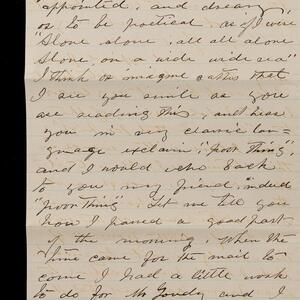 appointed, and dreary
or to be poetical, as if I were
"Alone, alone, all all alone
Alone on a wide wide sea"
I think or imagine rather that
I see you smile as you
are reading this, and hear
you in very classic lan-
guage exclaim, "poor thing",
and I would echo back
to you my friend, "indeed
"poor thing". Let me tell you
how I passed a good part
of the morning. When the
time came for the mail to
come I had a little work
to do for Mr and I